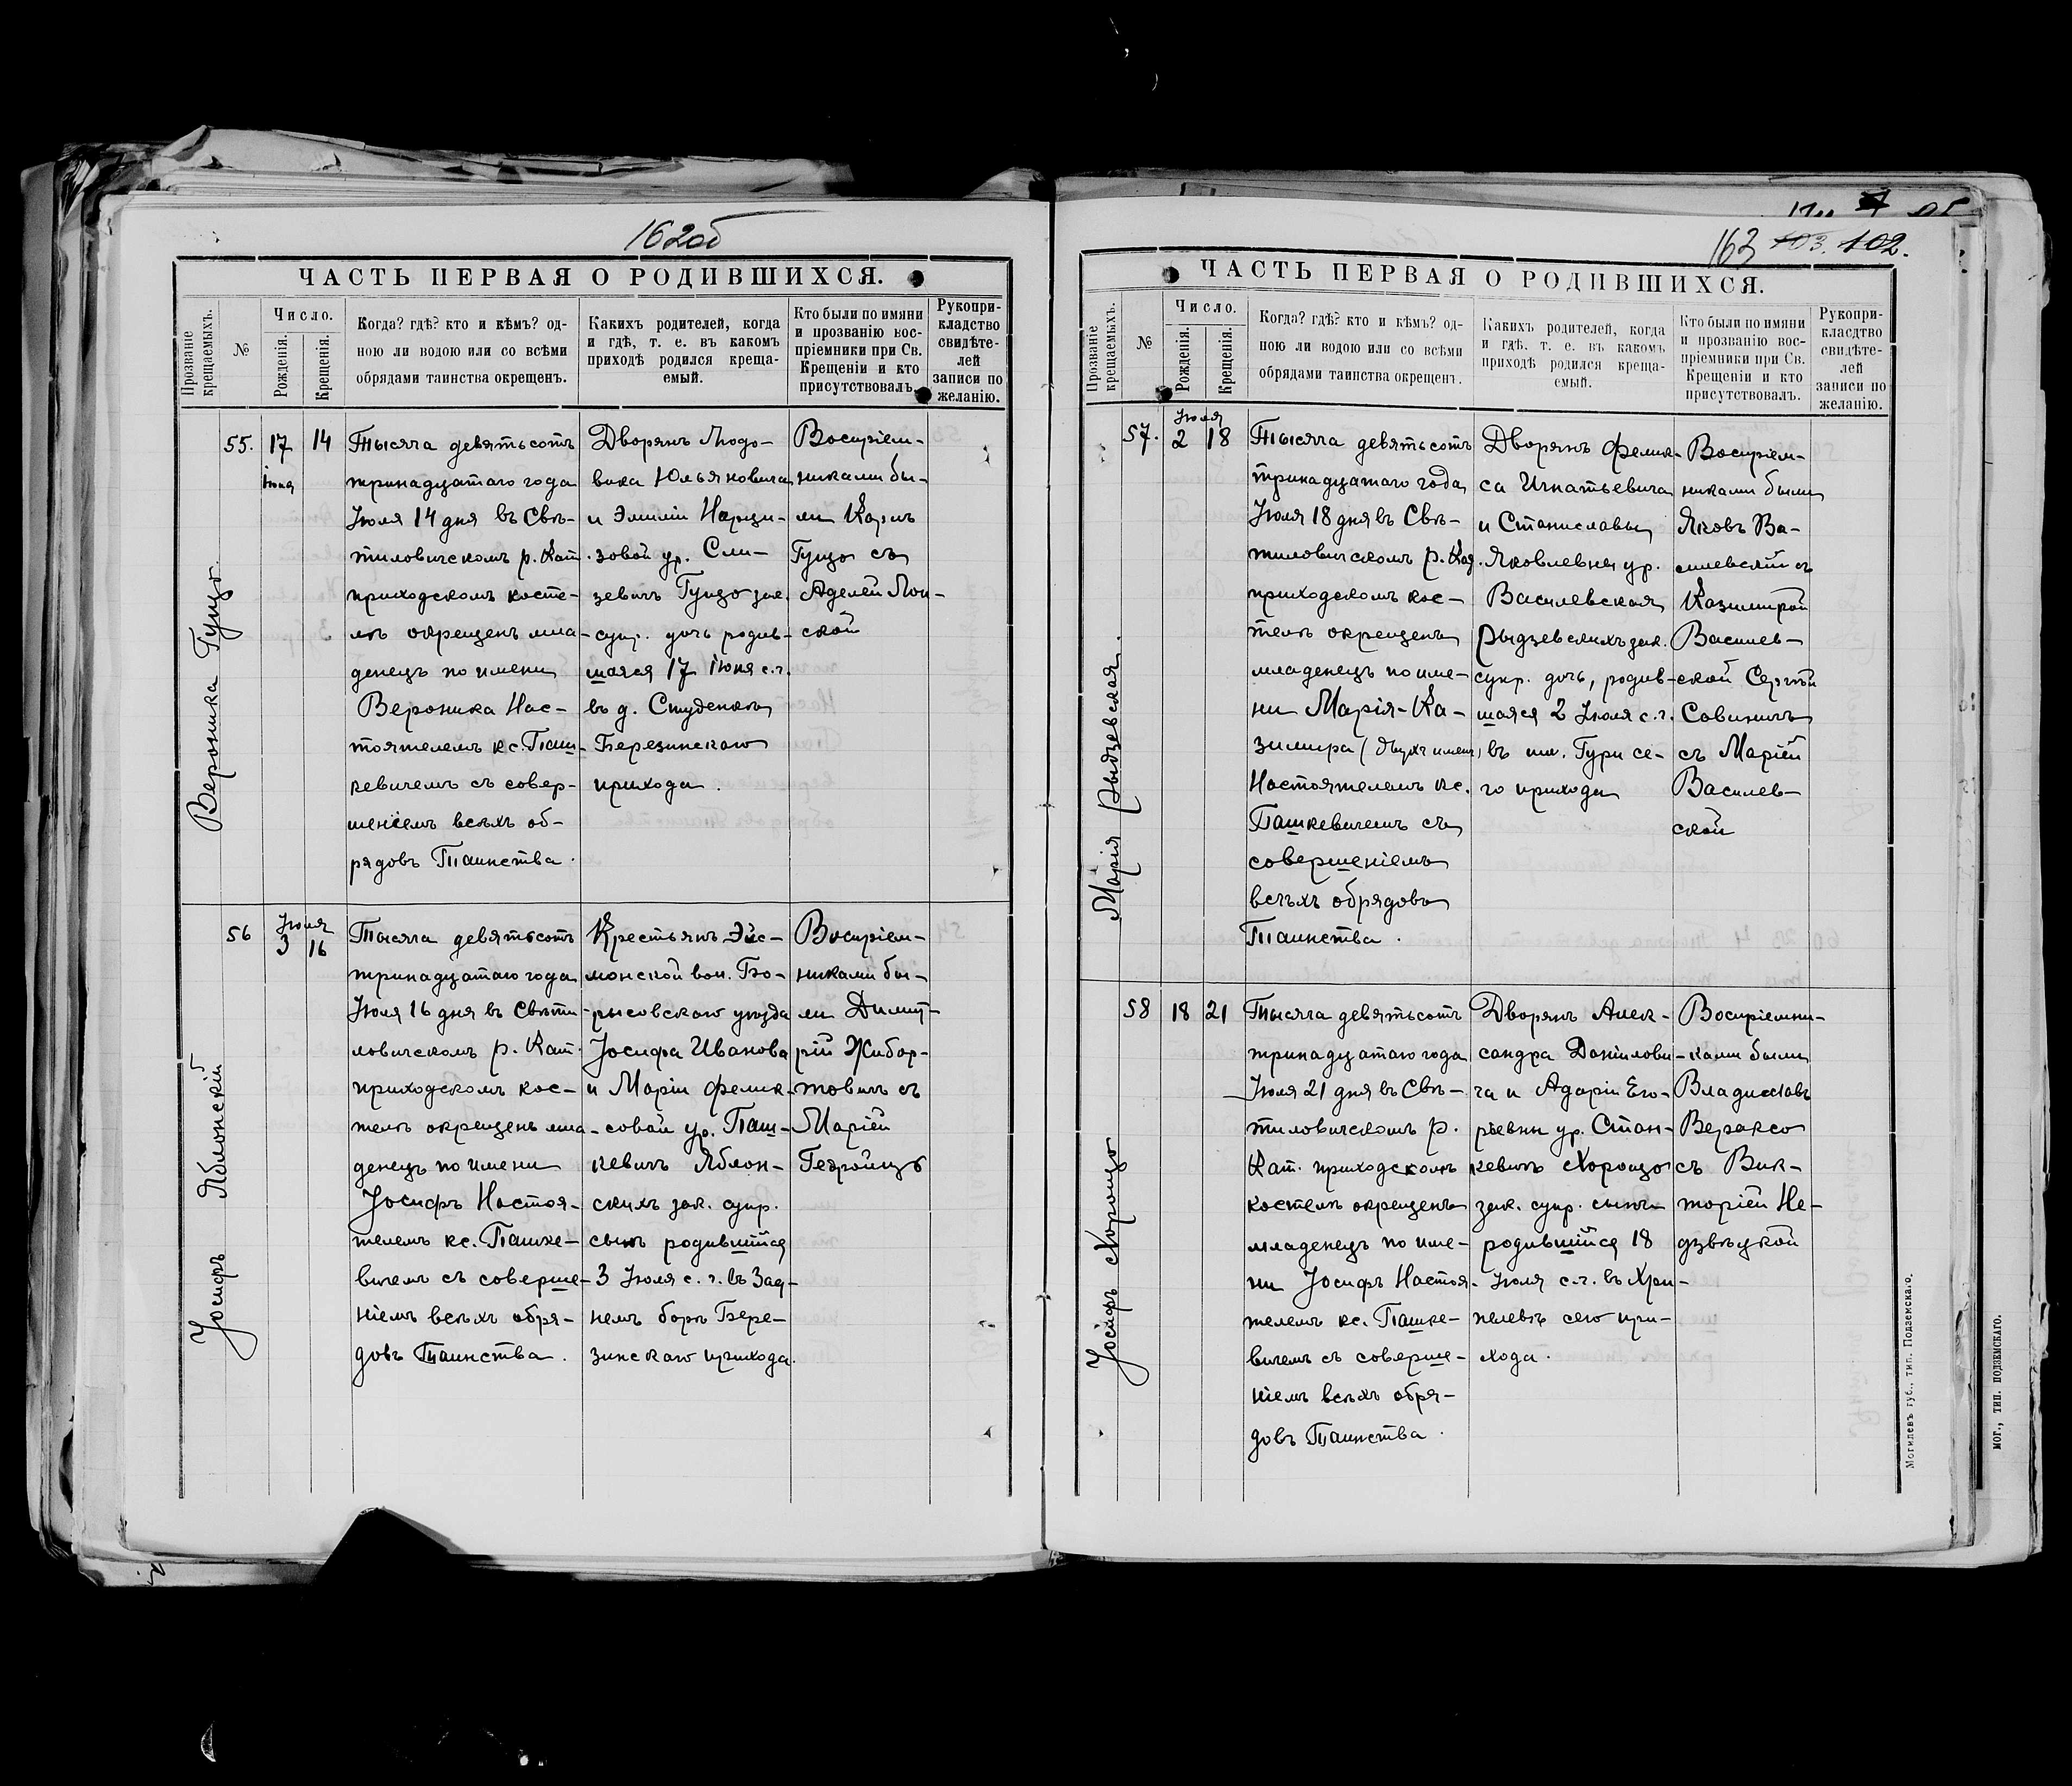 162об
ЧАСТЬ ПЕРВАЯ О РОДИВШИХСЯ.
Прозваніе крещаемыхъ.
№
Число.
Рожденія.
Крещенія.
Когда? гдѣ? кто и кѣмъ? од-
ною ли водою или со всѣми
обрядами таинства окрещенъ.
Какихъ родителей, когда
и гдѣ, т. е. въ какомъ
приходѣ родился креща-
емый.
Кто были по имяни
и прозванію вос-
пріемники при Св.
Крещеніи и кто
присутствовалъ.
Рукопри-
кладство
свидѣте-
лей
записи по
желанію.
Вероника Гуцо
55.
17
іюня
14
Тысяча девятьсотъ
тринадцатаго года
Іюля 14 дня въ Свѣ-
тиловичскомъ р. Кат.
приходскомъ косте-
лѣ окрещенъ мла-
денецъ по имени
Вероника Нас-
тоятелемъ кс. Паш-
кевичемъ съ совер-
шеніемъ всѣхъ об-
рядовъ Таинства.
Дворянъ Людо-
вика Юльяновича
и Эмиліи Нарци-
зовой ур. Сли-
зевичъ Гуцо зак.
супр. дочь родив-
шаяся 17 іюня с.г.
въ д. Студенка
Березинскаго
прихода.
Воспріем-
никами бы-
ли Карлъ
Гуцо съ
Аделей Лон-
ской
Іосифъ Яблонскій
56
Іюля
3
16
Тысяча девятьсотъ
тринадцатаго года
Іюля 16 дня въ Свѣти-
ловичскомъ р. Кат.
приходскомъ кос-
телѣ окрещенъ мла-
денецъ по имени
Іосифъ Настоя-
телемъ кс. Пашке-
вичемъ съ соверше-
ніемъ всѣхъ обря-
довъ Таинства.
Крестьянъ Эйс-
монской вол. Бо-
рысовскаго уѣзда
Іосифа Иванова
и Маріи Фелик-
совой ур. Паш-
кевичъ Яблон-
скихъ зак. супр.
сынъ родившійся
3 Іюля с. г. въ Зад-
немъ борѣ Бере-
зинскаго прихода.
Воспріем-
никами бы-
ли Димит-
рій Жибор-
товичъ съ
Маріей
Гедройцъ
163 103. 102.
ЧАСТЬ ПЕРВАЯ О РОДИВШИХСЯ.
Прозваніе крещаемыхъ.
№
Число.
Рожденія.
Крещенія.
Когда? гдѣ? кто и кѣмъ? од-
ною ли водою или со всѣми
обрядами таинства окрещенъ.
Какихъ родителей, когда
и гдѣ, т. е. въ какомъ
приходѣ родился креща-
емый.
Кто были по имяни
и прозванію вос-
пріемники при Св.
Крещеніи и кто
присутствовалъ.
Рукопри-
класдтво
свидѣте-
лей
записи по
желанію.
Марія Рыдзевская.
57.
Іюля
2
18
Тысяча девятьсотъ
тринадцатаго года
Іюля 18 дня въ Свѣ-
тиловичскомъ р. Кат.
приходскомъ кос-
телѣ окрещенъ
младенецъ по име-
ни Марія-Ка-
зимира (двухъ именъ)
Настоятелемъ кс.
Пашкевичемъ съ
совершеніемъ
всѣхъ обрядовъ
Таинства.
Дворянъ Фелик-
са Игнатьевича
и Станиславы
Яковлевны ур.
Василевская
Рыдзевскихъ зак.
супр. дочь, родив-
шаяся 2 Іюля с.г.
въ им. Гури се-
го прихода
Воспріем-
никами были
Яковъ Ва-
силевскій съ
Казимирой
Василев-
ской Сергѣй
Савиничъ
съ Маріей
Василев-
ской
Іосифъ Хороцо
58
18
21
Тысяча девятьсотъ
тринадцатаго года
Іюля 21 дня въ Свѣ-
тиловичскомъ р.
Кат. приходскомъ
костелѣ окрещенъ
младенецъ по име-
ни Іосифъ Настоя-
телемъ кс. Пашке-
вичемъ съ соверше-
ніемъ всѣхъ обря-
довъ Таинства.
Дворянъ Алек-
сандра Данілови-
ча и Адаріи Его-
рьевны ур. Стан-
кевичъ Хороцо
зак. супр. сынъ
родившійся 18
Іюля с.г. въ Хра-
пелевѣ сего при-
хода.
Воспріемни-
ками были
Владиславъ
Вераксо
съ Вик-
торіей Не-
дзвѣцкой
Могилевъ губ., тип. Подземскаго.
МОГ., ТИП. ПОДЗЕМСКАГО.